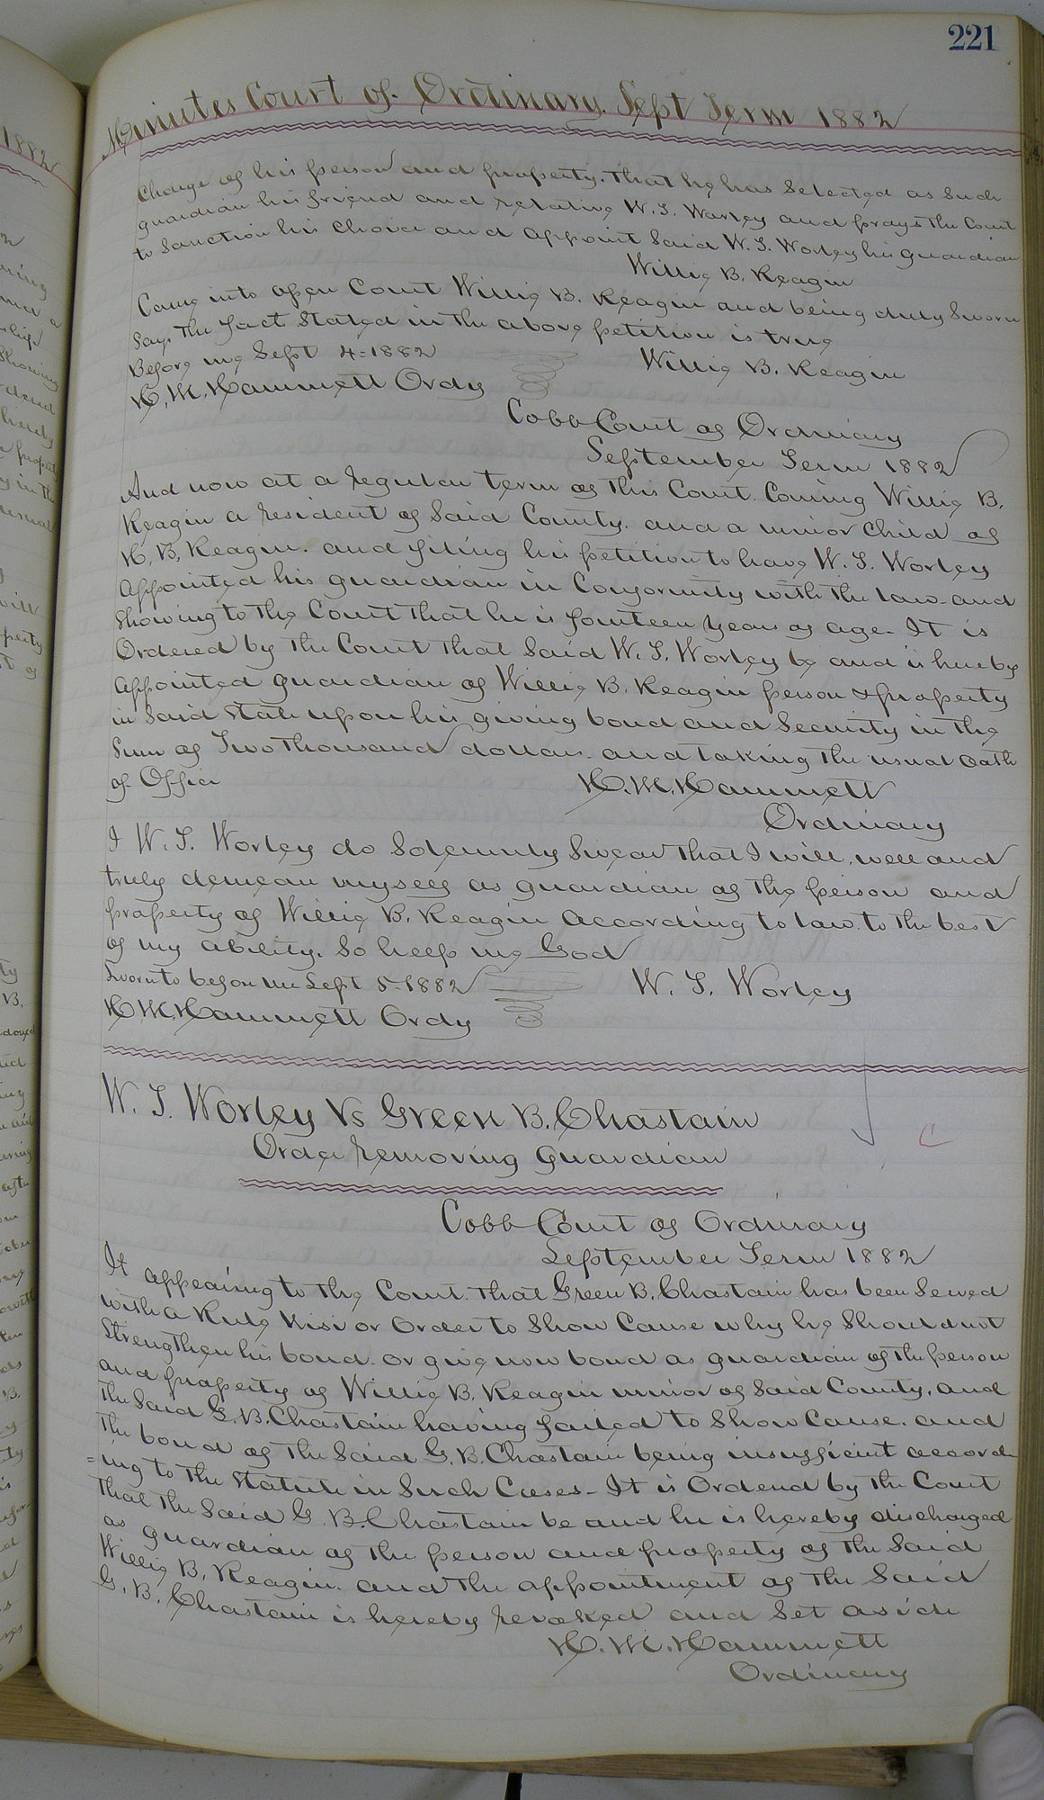 221
Minutes Court of Ordinary Sept Term 1882
Charge of his person and property. That he has Selected as Such
guardian his friend and relative W. T. Worley and prays the Court
to Sanction his Choice and Appoint Said W. T. Worley his guardian
Willie B. Reagin
Came into open Court Willie B. Reagin and being duly Sworn
Says the fact Stated in the above petition is true
Before me Sept 4-1882 Willie B. Reagin
H. M. Hammett Ordy
Cobb Court of Ordinary
September Term 1882
And now at a regular term of this Court Coming Willie B.
Reagin a resident of Said County. and a minor Child of
H. B. Reagin. and filing his petition to have W. T. Worley
Appointed his guardian in Conformity with the law and
Showing to the Court that he is fourteen years of age. It is
Ordered by the Court that Said W. T. Worley be and is hereby
Appointed guardian of Willie B. Reagin person & property
in Said State upon his giving bond and Security in the
Sum of Two thousand dollars. and taking the usual oath
of Office
H. M. Hammett
Ordinary
I W. T. Worley do Solemnly Swear that I will, well and
truly demean myself as guardian of the person and
property of Willie B. Reagin according to law. to the best
of my ability. So help me God
Sworn to before me Sept 5-1882 W. T. Worley
H. M. Hammett Ordy
W. T. Worley Vs Green B. Chastain
Order removing guardian
Cobb Court of Ordinary
September Term 1882
It appearing to the Court that Green B. Chastain has been Served
with a Rule Nisi or Order to Show Cause why he Should not
Strengthen his bond. or give new bond as guardian of the person
and property of Willie B. Reagin minor of Said County. and
the Said G. B. Chastain having failed to Show Cause. and
the bond of the Said G. B. Chastain being insufficient accord
=ing to the Statute in Such Cases- It is Ordered by the Court
that the Said G. B. Chastain be and he is hereby discharged
as guardian of the person and property of the Said
Willie B. Reagin. and the appointment of the Said
G. B. Chastain is hereby revoked and Set aside
H. M. Hammett
Ordinary